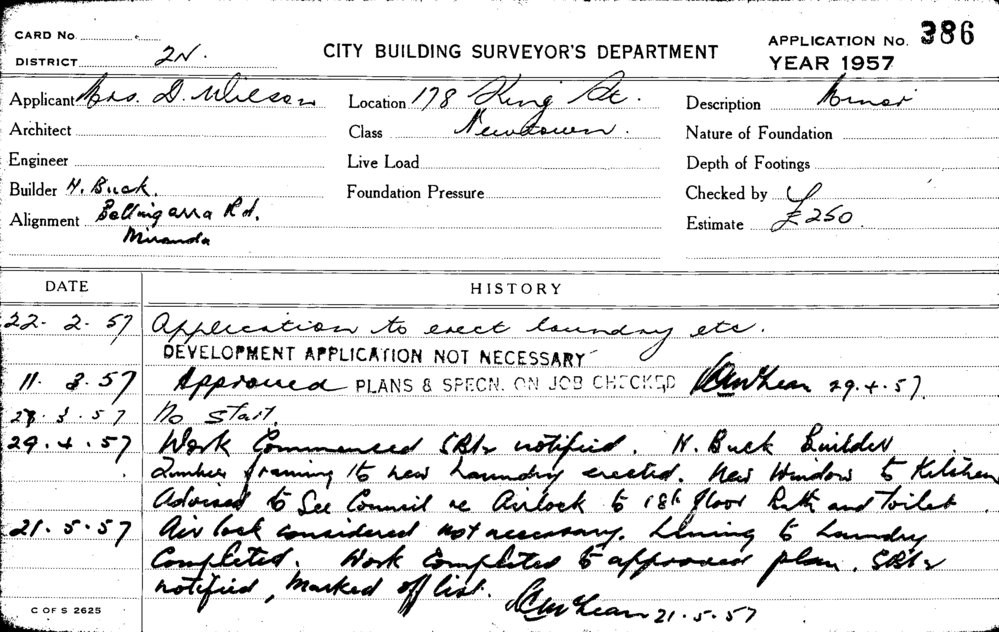 CARD No
APPLICATION No. 386
DISTRICT 2N.
CITY BUILDING SURVEYOR'S DEPARTMENT
YEAR 1957
Applicant Mrs. D. Wilson Location 178 King St. Description Minor
Architect Class Newtown. Nature of Foundation
Engineer Live Load Depth of Footings
Builder H. Buck. Foundation Pressure Checked by
Alignment Bellingarra Rd. Estimate £250
Miranda
DATE HISTORY
22. 2. 57 Application to erect laundry etc.
DEVELOPMENT APPLICATION NOT NECESSARY
11. 3. 57 Approved PLANS & SPECN. ON JOB CHECKED 29.4.57.
28. 3. 57 No start.
29. 4. 57 Work Commenced notified. H. Buck Builder
Timber framing to new Laundry erected. New Window to Kitchen
Advised to See Council re Airlock to 1st floor Bath and toilet.
21. 5. 57 Air lock considered not necessary. Lining to Laundry
Completed. Work Completed to approved plan.
notified, Marked off list. 21.5.57
C OF S 2625